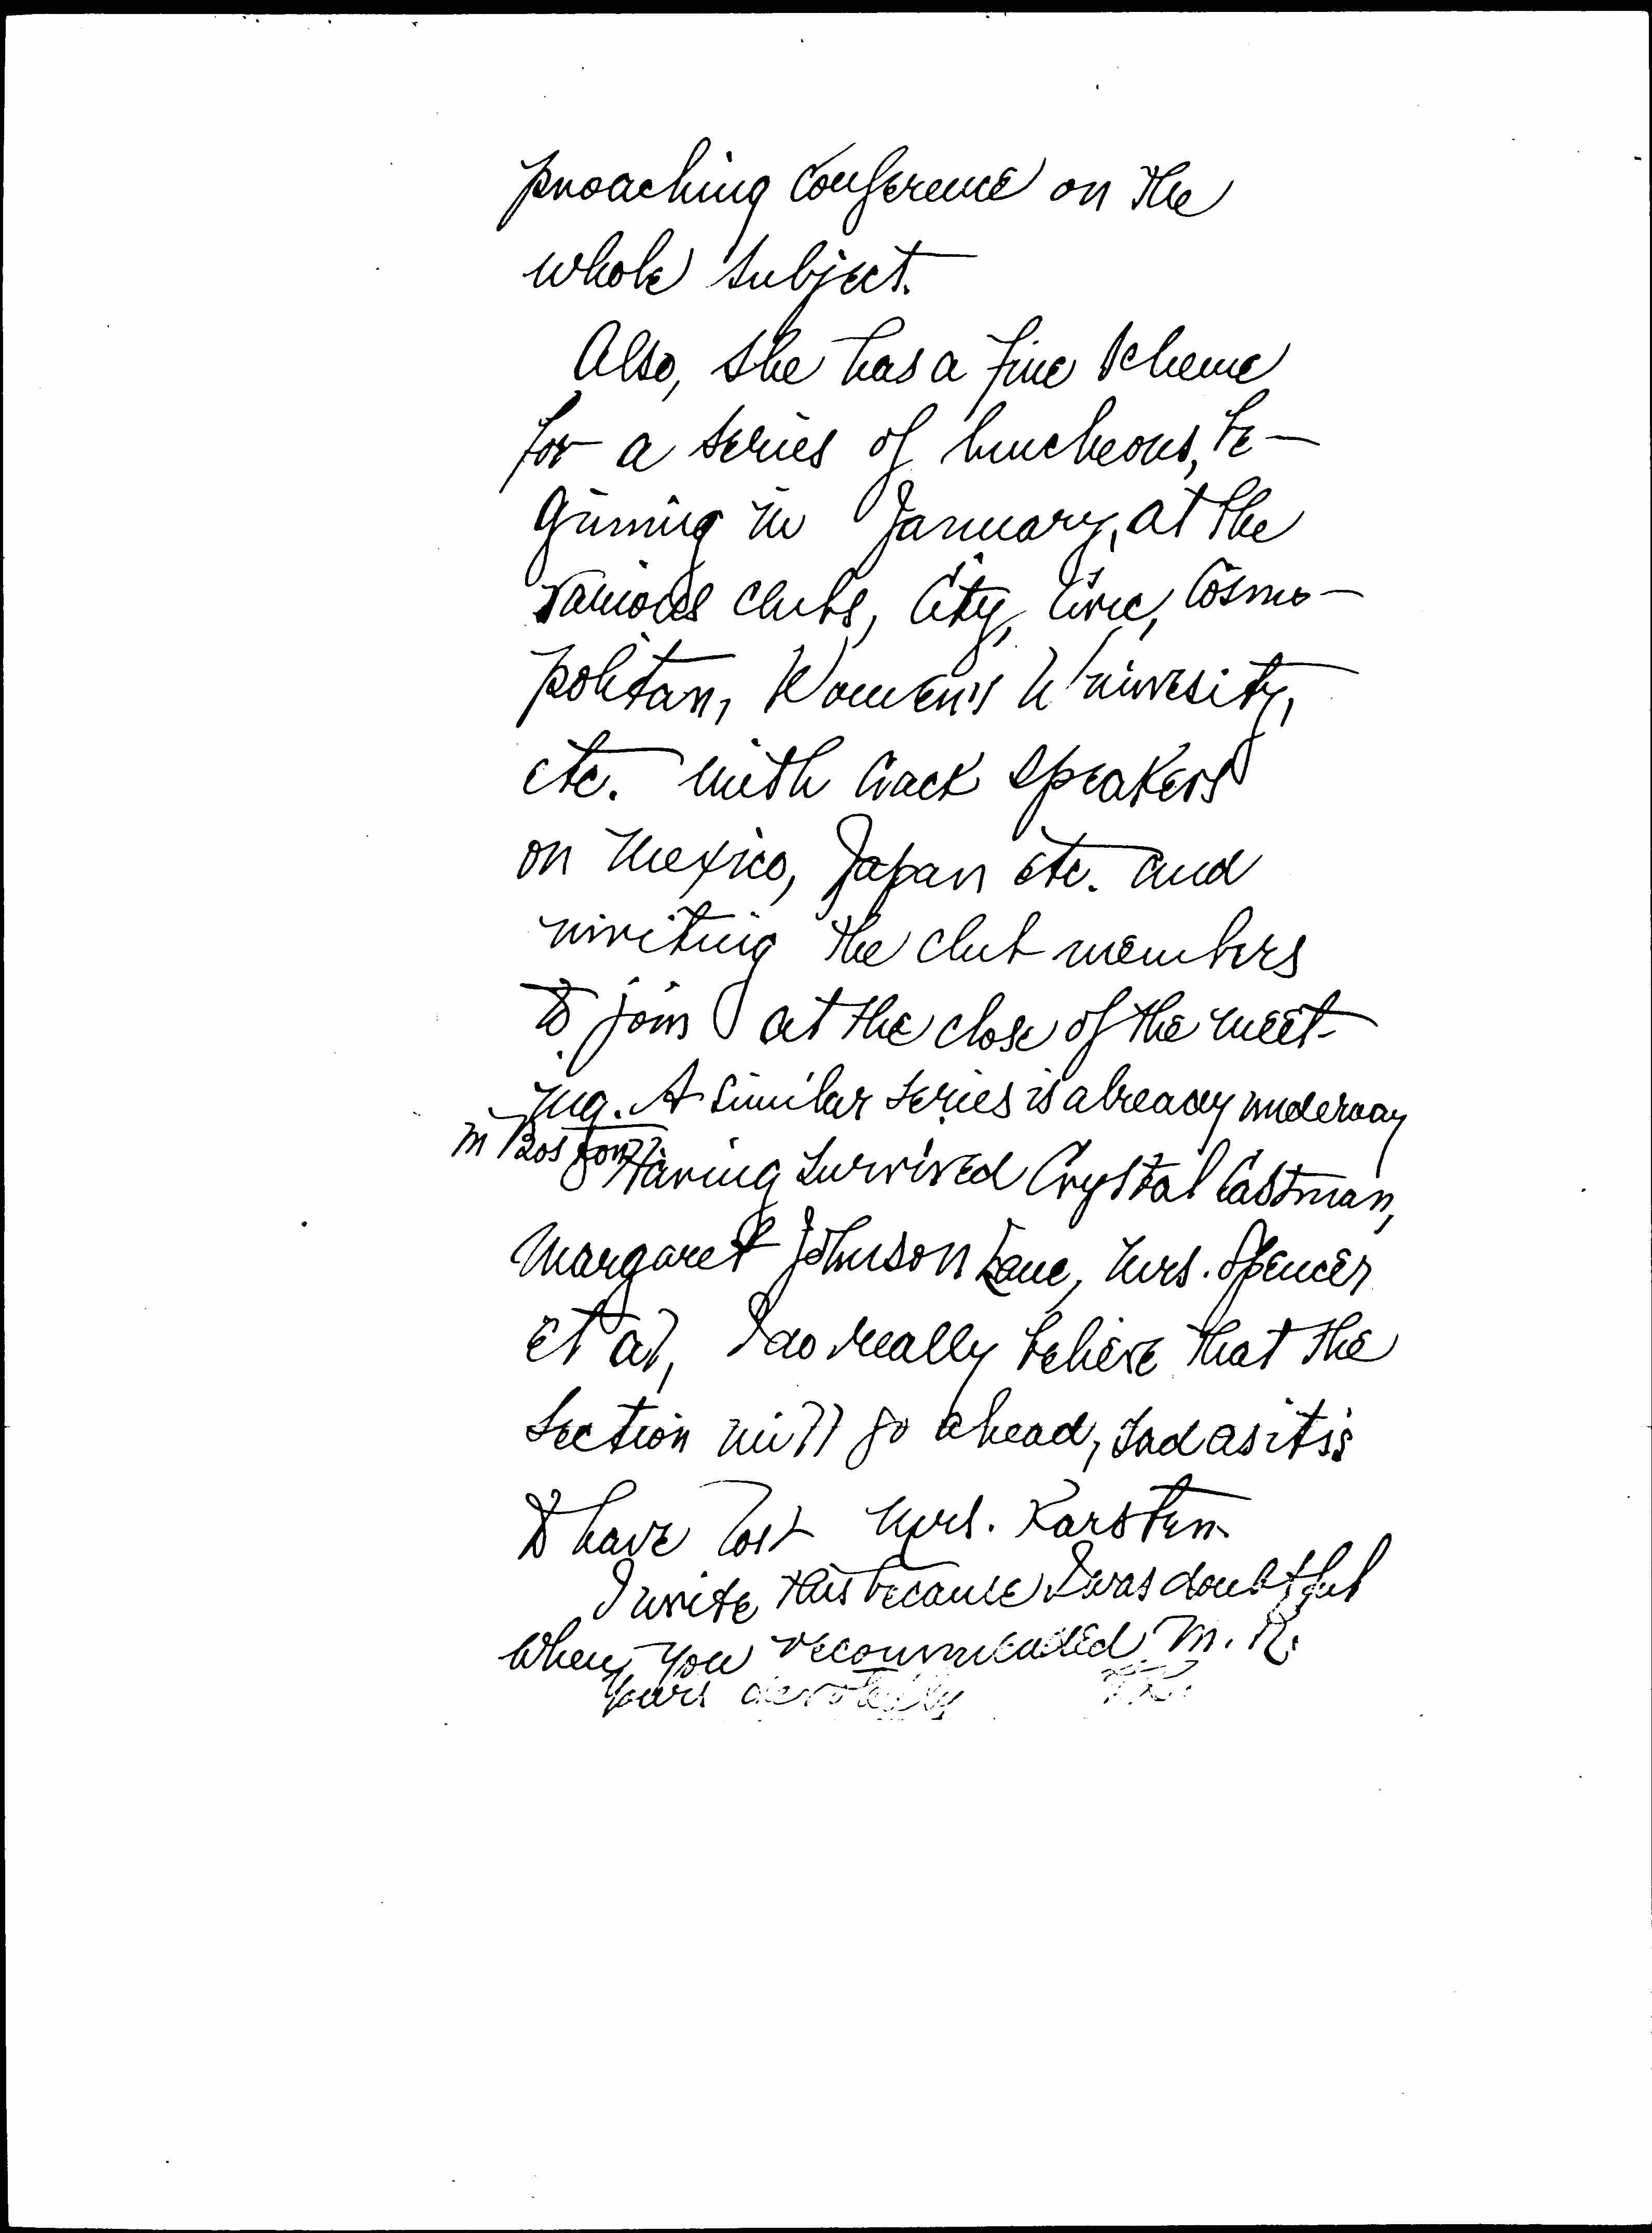 proaching conference on the
whole subject.
Also, she has a fine scheme
for a series of luncheons, be-
ginning in January, at the
various clubs, City, Civic, Cosmo-
politan, Women's University,
etc. with crack speakers
on Mexico, Japan etc. and
inviting the club members
to join at the close of the meet-
ing. A similar series is already underway
in Boston.
Having survived Crystal Eastman,
Margaret Johnson Lane, Mrs. Spencer
et al, I do really believe that the
Section will go ahead, sad as it is
to have lost Mrs. Karsten.
I write this because I was doubtful
when you recommended M. R.
Yours devotedly